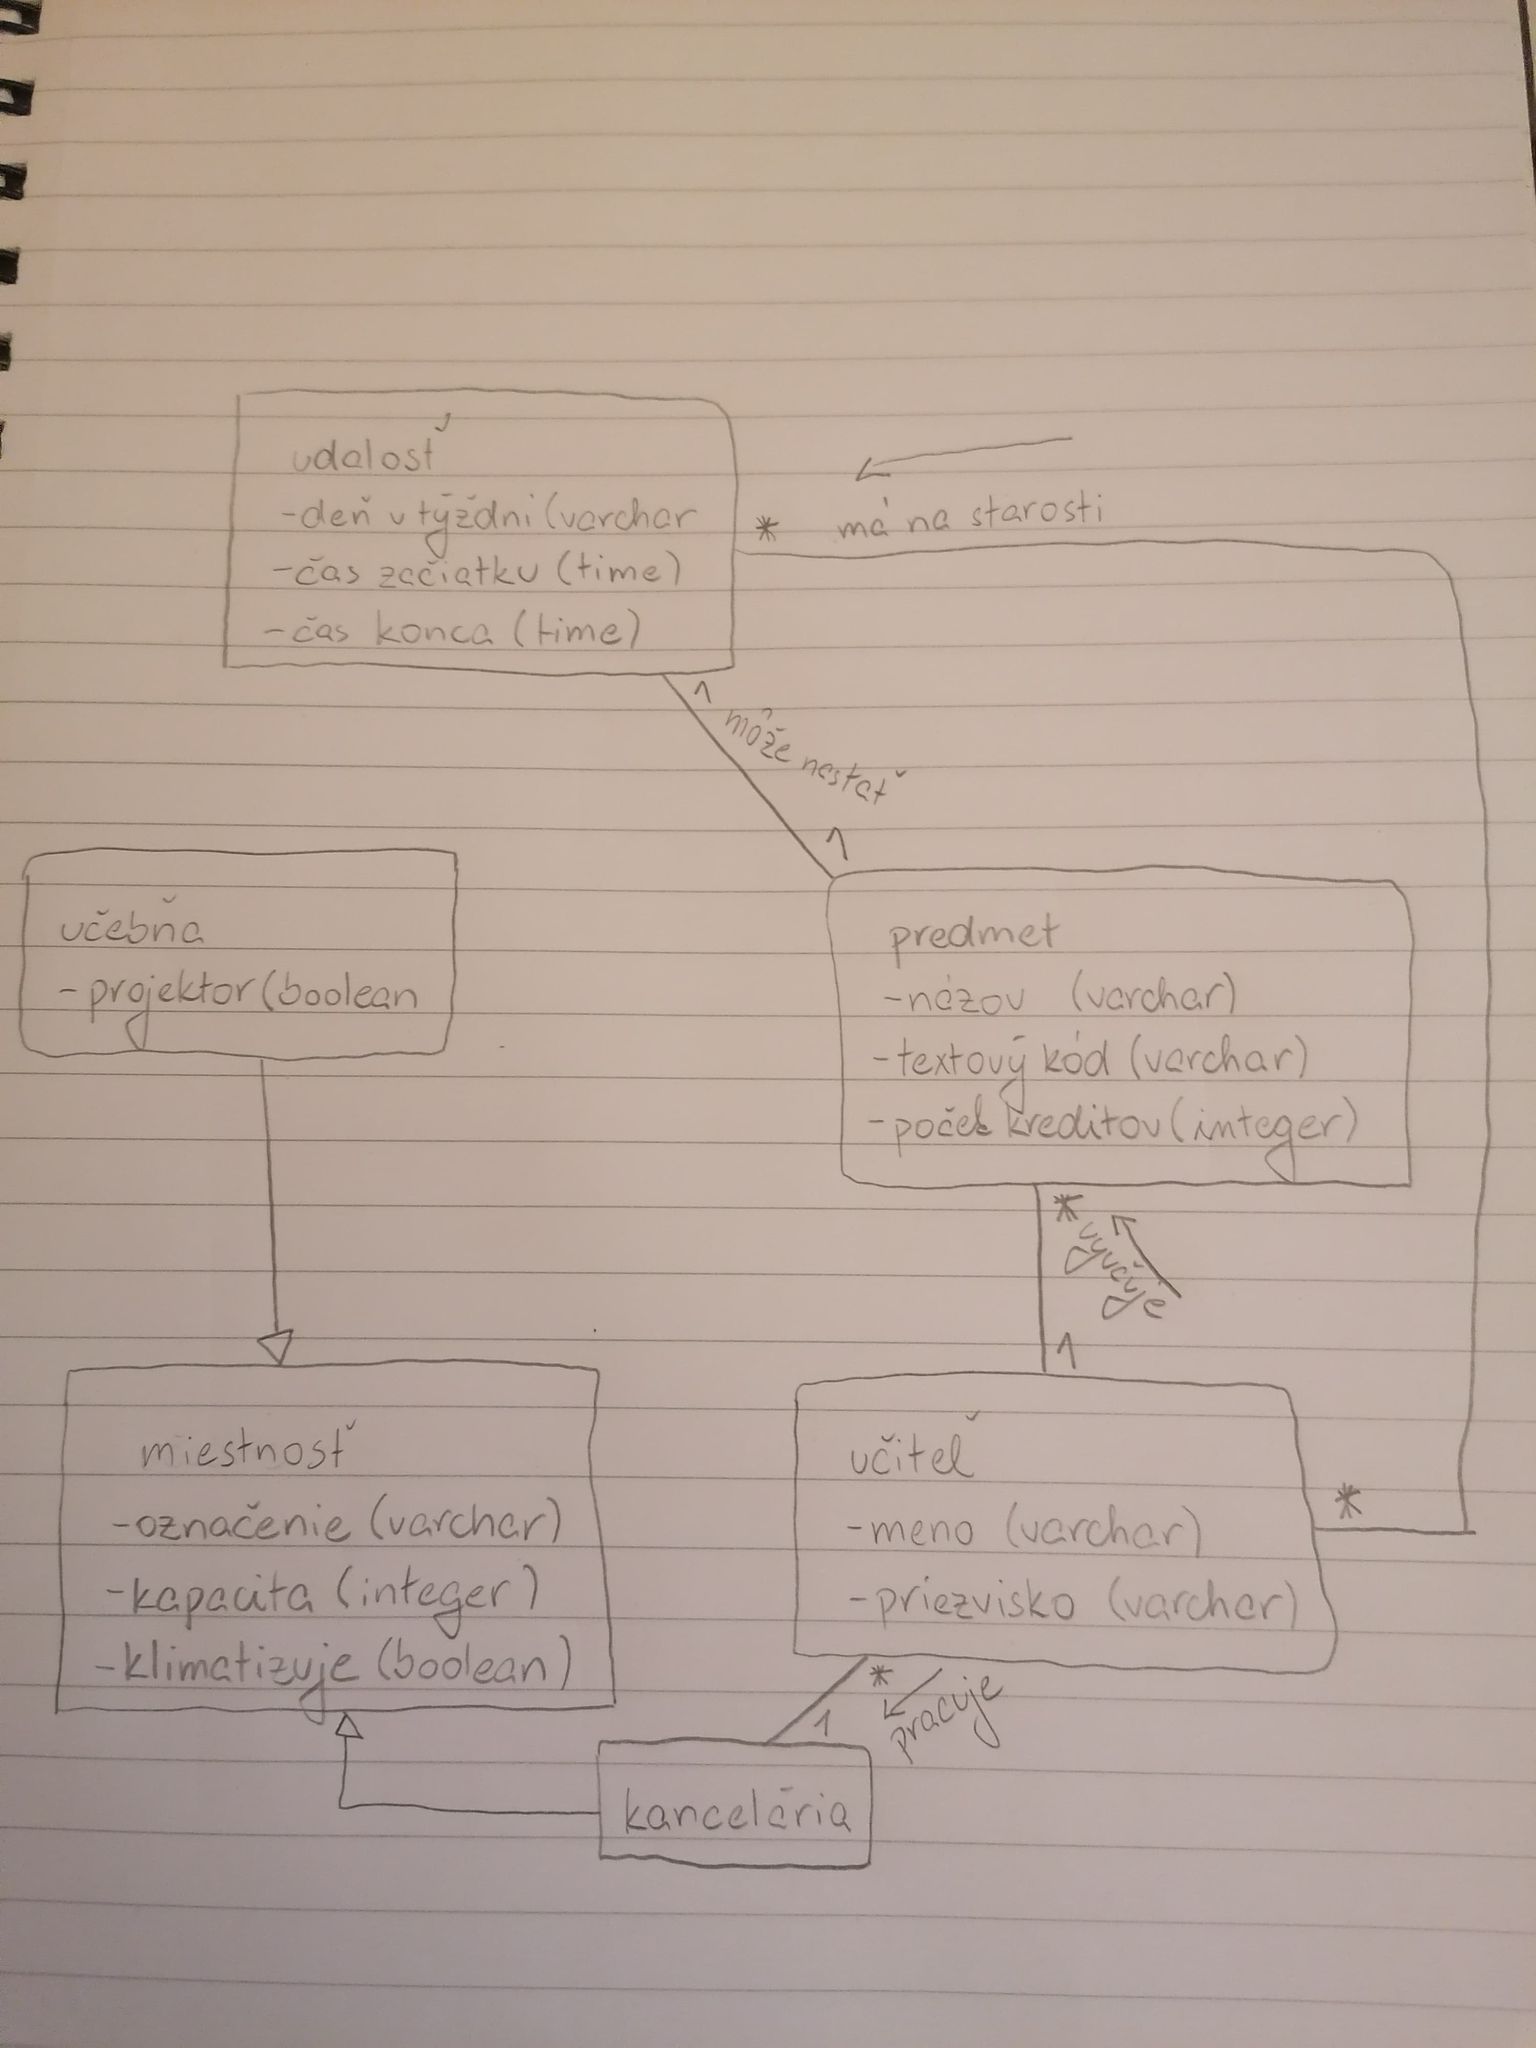 udalosť
-deň v týždni (varchar
-čas začiatku (time)
-čas konca (time)
* má na starosti
1
môže nastať
1
učebňa
-projektor (boolean
predmet
-názov (varchar)
-textový kód (varchar)
-poček kreditov (integer)
*
vyučuje
1
miestnosť
-označenie (varchar)
-kapacita (integer)
-klimatizuje (boolean)
učiteľ
-meno (varchar)
-priezvisko (varchar)
*
*
pracuje
1
kancelária